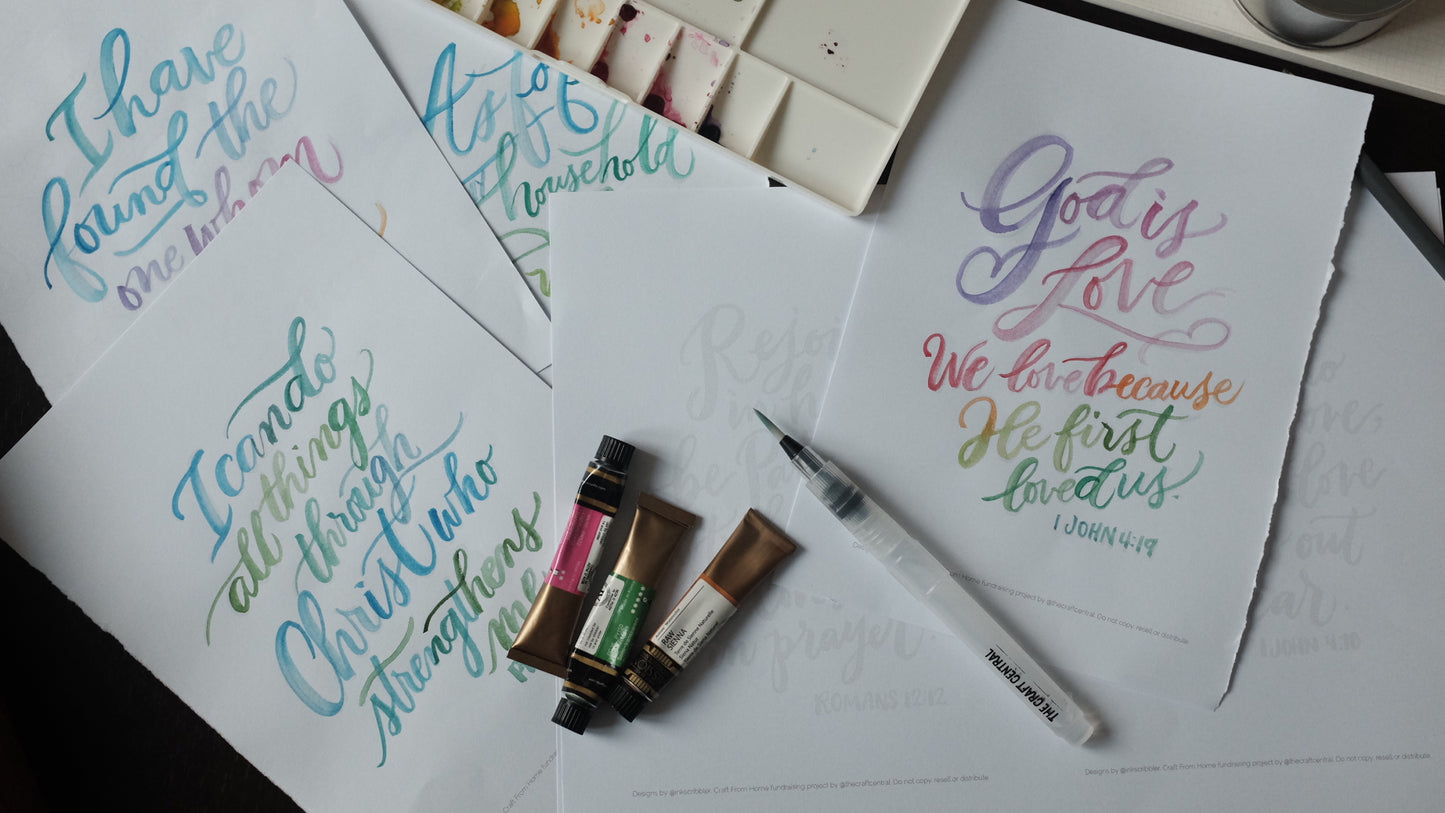 I have
found the
one whom
As for
household
I can do
all things
through
Christ who
strengthens
me
God is
Love
We love because
He first
loved us.
1 JOHN 4:19
Rejoi
in h
be Pa
in prayer
ROMANS 12:12
love
out
1 JOHN 4:18
RAW
SIENNA
Terre de Sienne Naturelle
THE CRAFT CENTRAL
Craft From Home fundra
m Home fundraising project by @thecraftcentral. Do not copy, resell or distribute.
Designs by @inkscribbler. Craft From Home fundraising project by @thecraftcentral. Do not copy, resell or distribute.
Designs by @inkscribbler. Craft From Home fundraising project by @thecraftcentral. Do not copy, resell or distribute.